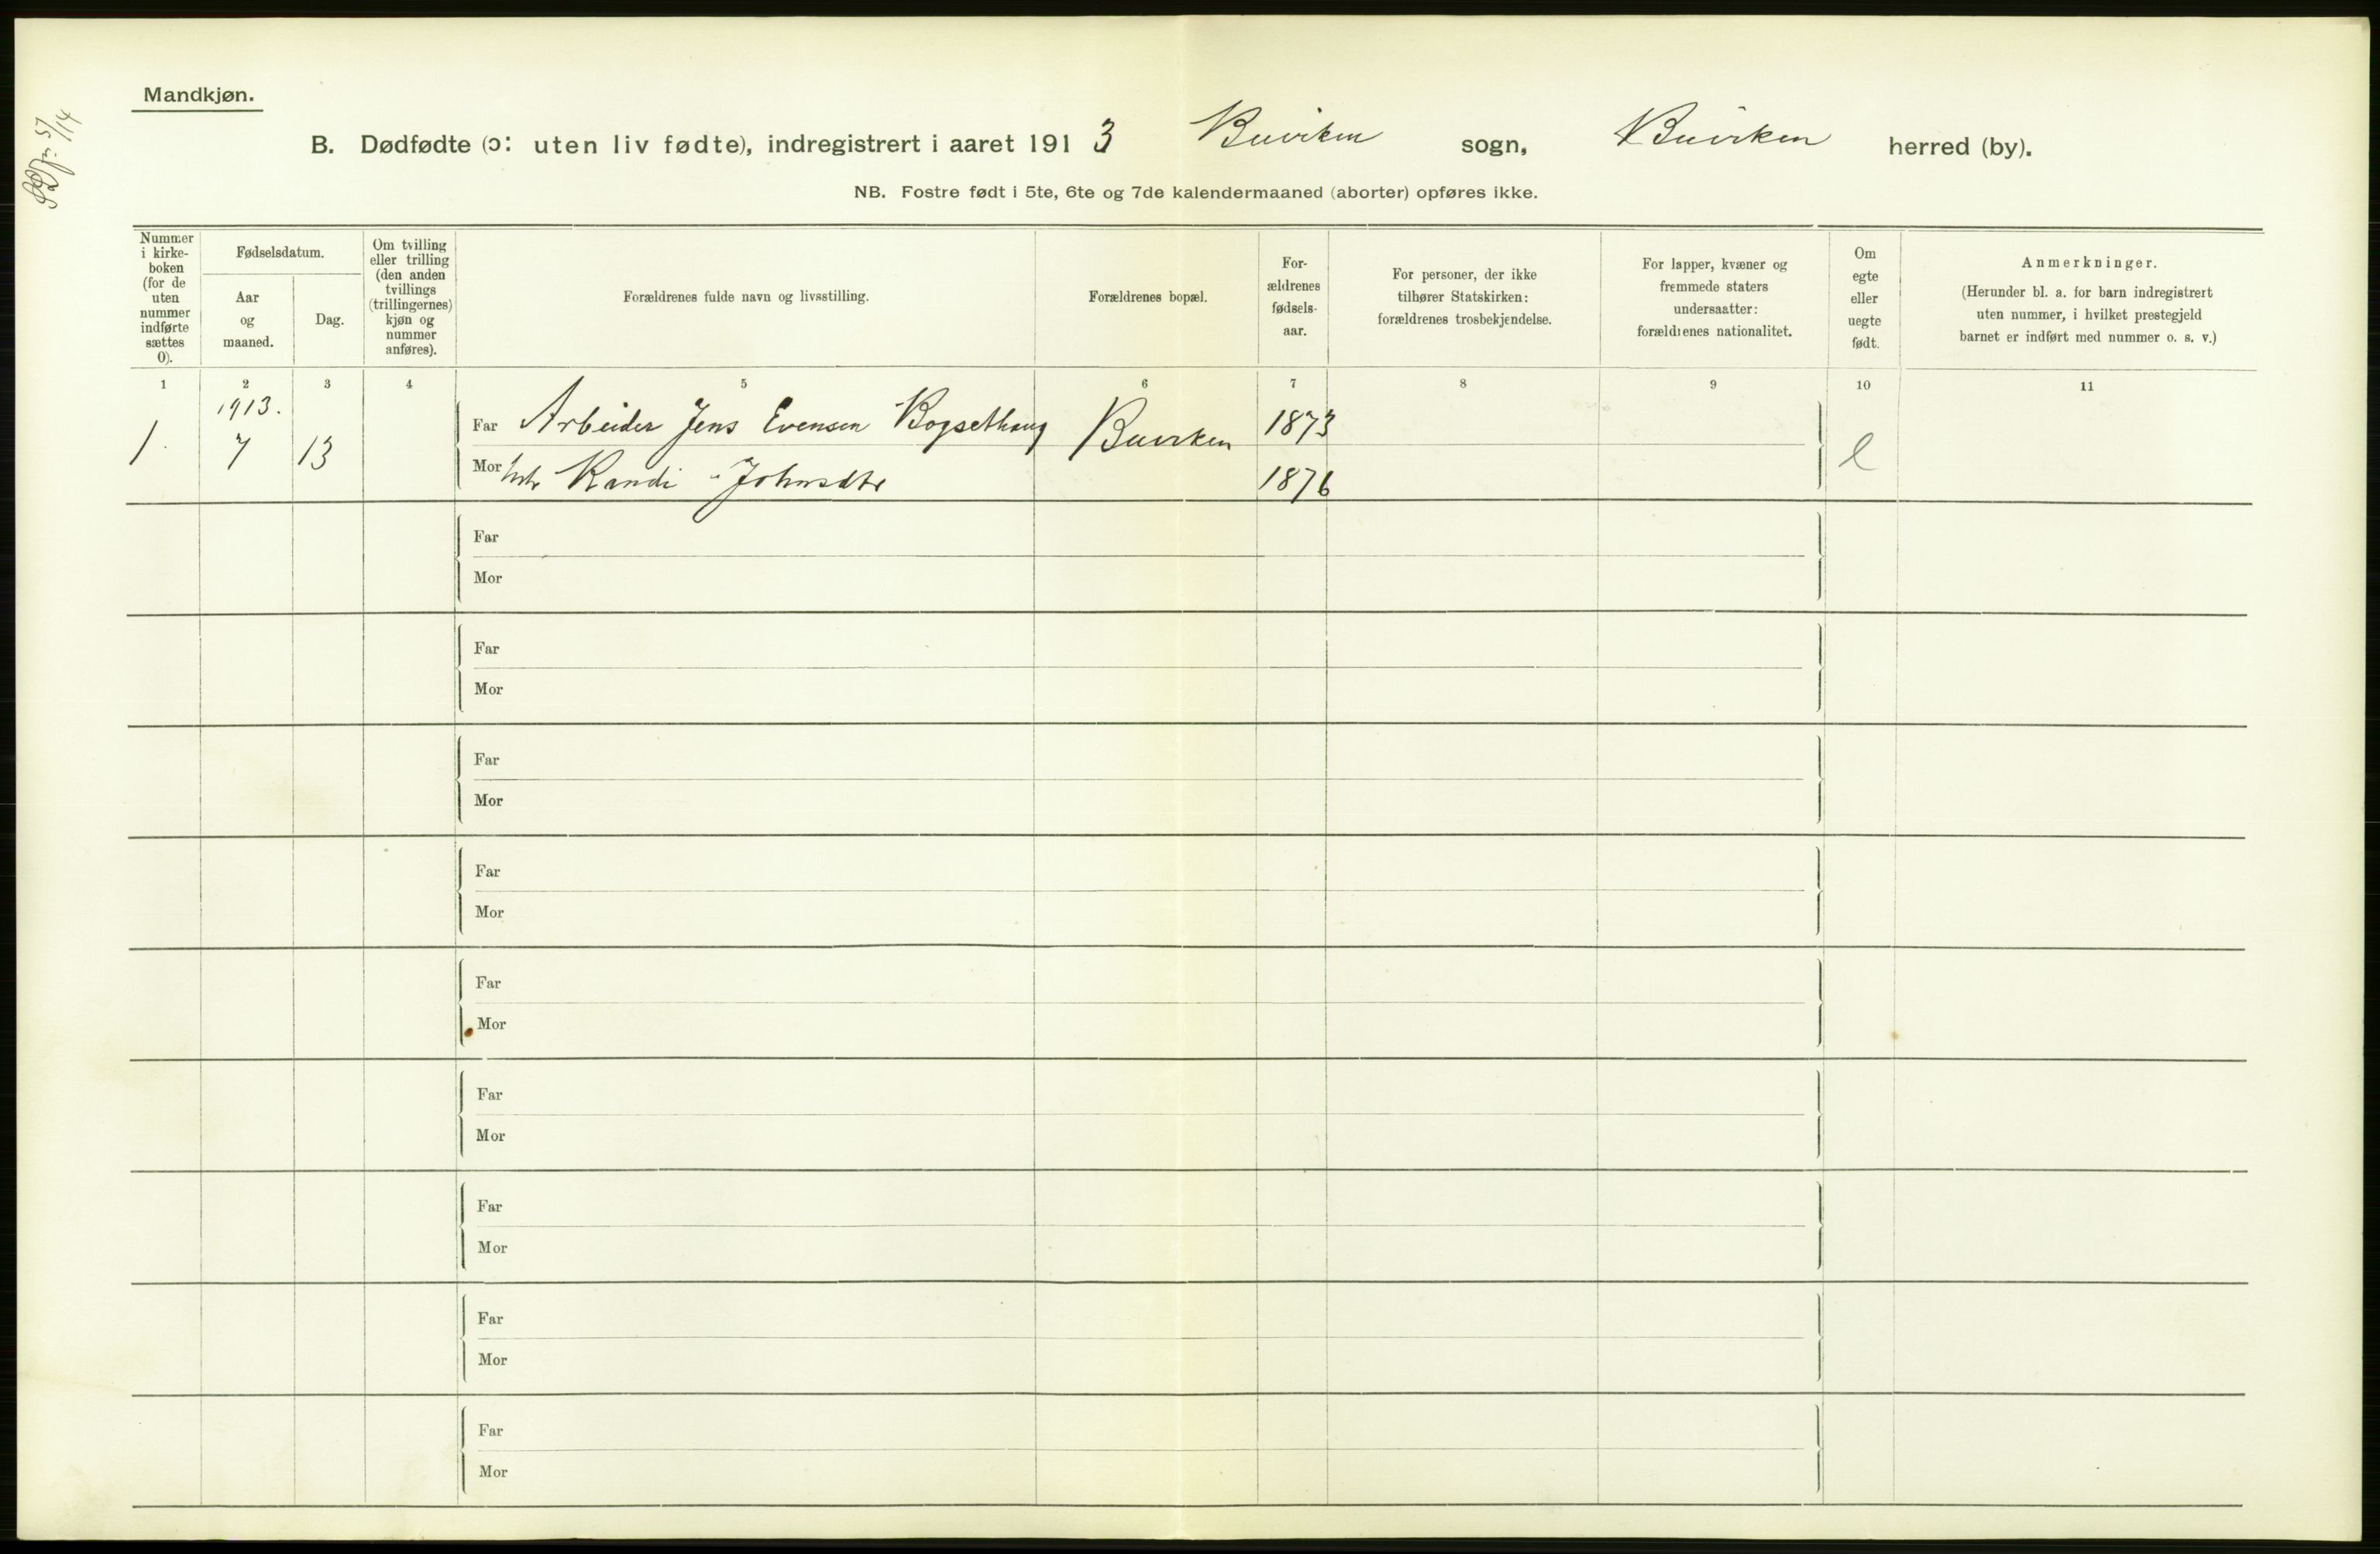 Mandkjøn.
B. Dødfødte (ɔ: uten liv fødte), indregistrert i aaret 1913 Buviken sogn, Buviken herred (by).
NB. Fostre født i 5te, 6te og 7de kalendermaaned (aborter) opføres ikke.
Nummer
i kirke-
boken
(for de
uten
nummer
indførte
sættes
0).
Fødselsdatum.
Aar
og
maaned.
Dag.
Om tvilling
eller trilling
(den anden
tvillings
(trillingernes)
kjøn og
nummer
anføres).
Forældrenes fulde navn og livsstilling.
Forældrenes bopæl.
For-
ældrenes
fødsels-
aar.
For personer, der ikke
tilhører Statskirken:
forældrenes trosbekjendelse.
For lapper, kvæner og
fremmede staters
undersaatter:
forældrenes nationalitet.
Om
egte
eller
uegte
født.
Anmerkninger.
(Herunder bl. a. for barn indregistrert
uten nummer, i hvilket prestegjeld
barnet er indført med nummer o. s. v.)
1 2 3 4 5 6 7 8 9 10 11
1913.
1. 7 13
Far Arbeider Jens Evensen Bogsethaug Buviken 1873
e
Mor Randi Johnsdtr 1876
Far
Mor
Far
Mor
Far
Mor
Far
Mor
Far
Mor
Far
Mor
Far
Mor
Far
Mor
Far
Mor